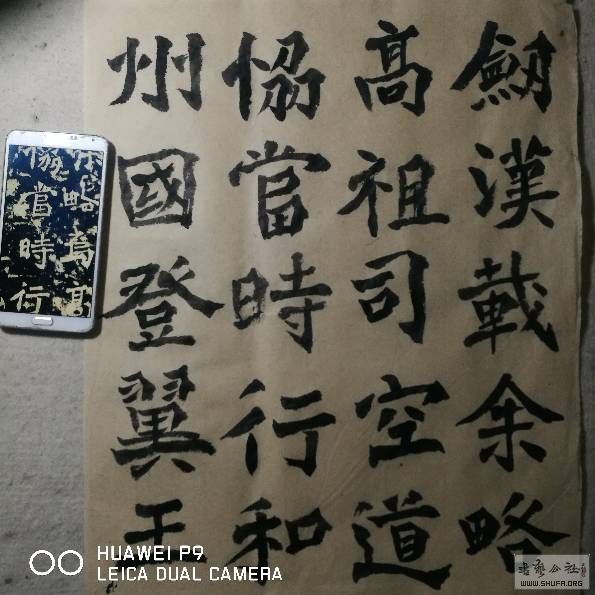 劒漢載余略
高祖司空道
恊當時行和
州國登翼王
當時行
HUAWEI P9
LEICA DUAL CAMERA
WWW.SHUFA.ORG